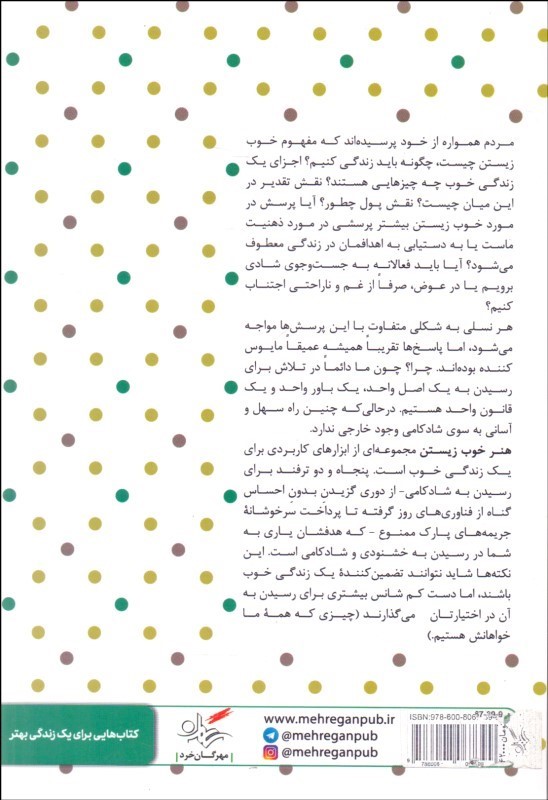 مردم همواره از خود پرسیده‌اند که مفهوم خوب
زیستن چیست، چگونه باید زندگی کنیم؟ اجزای یک
زندگی خوب چه چیزهایی هستند؟ نقش تقدیر در
این میان چیست؟ نقش پول چطور؟ آیا پرسش در
مورد خوب زیستن بیشتر پرسشی در مورد ذهنیت
ماست یا به دستیابی به اهدافمان در زندگی معطوف
می‌شود؟ آیا باید فعالانه به جست‌وجوی شادی
برویم یا در عوض، صرفاً از غم و ناراحتی اجتناب
کنیم؟
هر نسلی به شکلی متفاوت با این پرسش‌ها مواجه
می‌شود، اما پاسخ‌ها تقریباً همیشه عمیقاً مایوس
کننده بوده‌اند. چرا؟ چون ما دائماً در تلاش برای
رسیدن به یک اصل واحد، یک باور واحد و یک
قانون واحد هستیم. درحالی‌که چنین راه سهل و
آسانی به سوی شادکامی وجود خارجی ندارد.
هنر خوب زیستن مجموعه‌ای از ابزارهای کاربردی برای
یک زندگی خوب است. پنجاه و دو ترفند برای
رسیدن به شادکامی- از دوری گزیدن بدون احساس
گناه از فناوری‌های روز گرفته تا پرداخت سرخوشانهٔ
جریمه‌های پارک ممنوع - که هدفشان یاری به
شما در رسیدن به خشنودی و شادکامی است. این
نکته‌ها شاید نتوانند تضمین‌کنندهٔ یک زندگی خوب
باشند، اما دست کم شانس بیشتری برای رسیدن به
آن در اختیارتان می‌گذارند (چیزی که همهٔ ما
خواهانش هستیم.)
کتاب‌هایی برای یک زندگی بهتر
مهرگان خرد
www.mehreganpub.ir
@mehreganpub
@mehreganpub
ISBN: 978-600-806